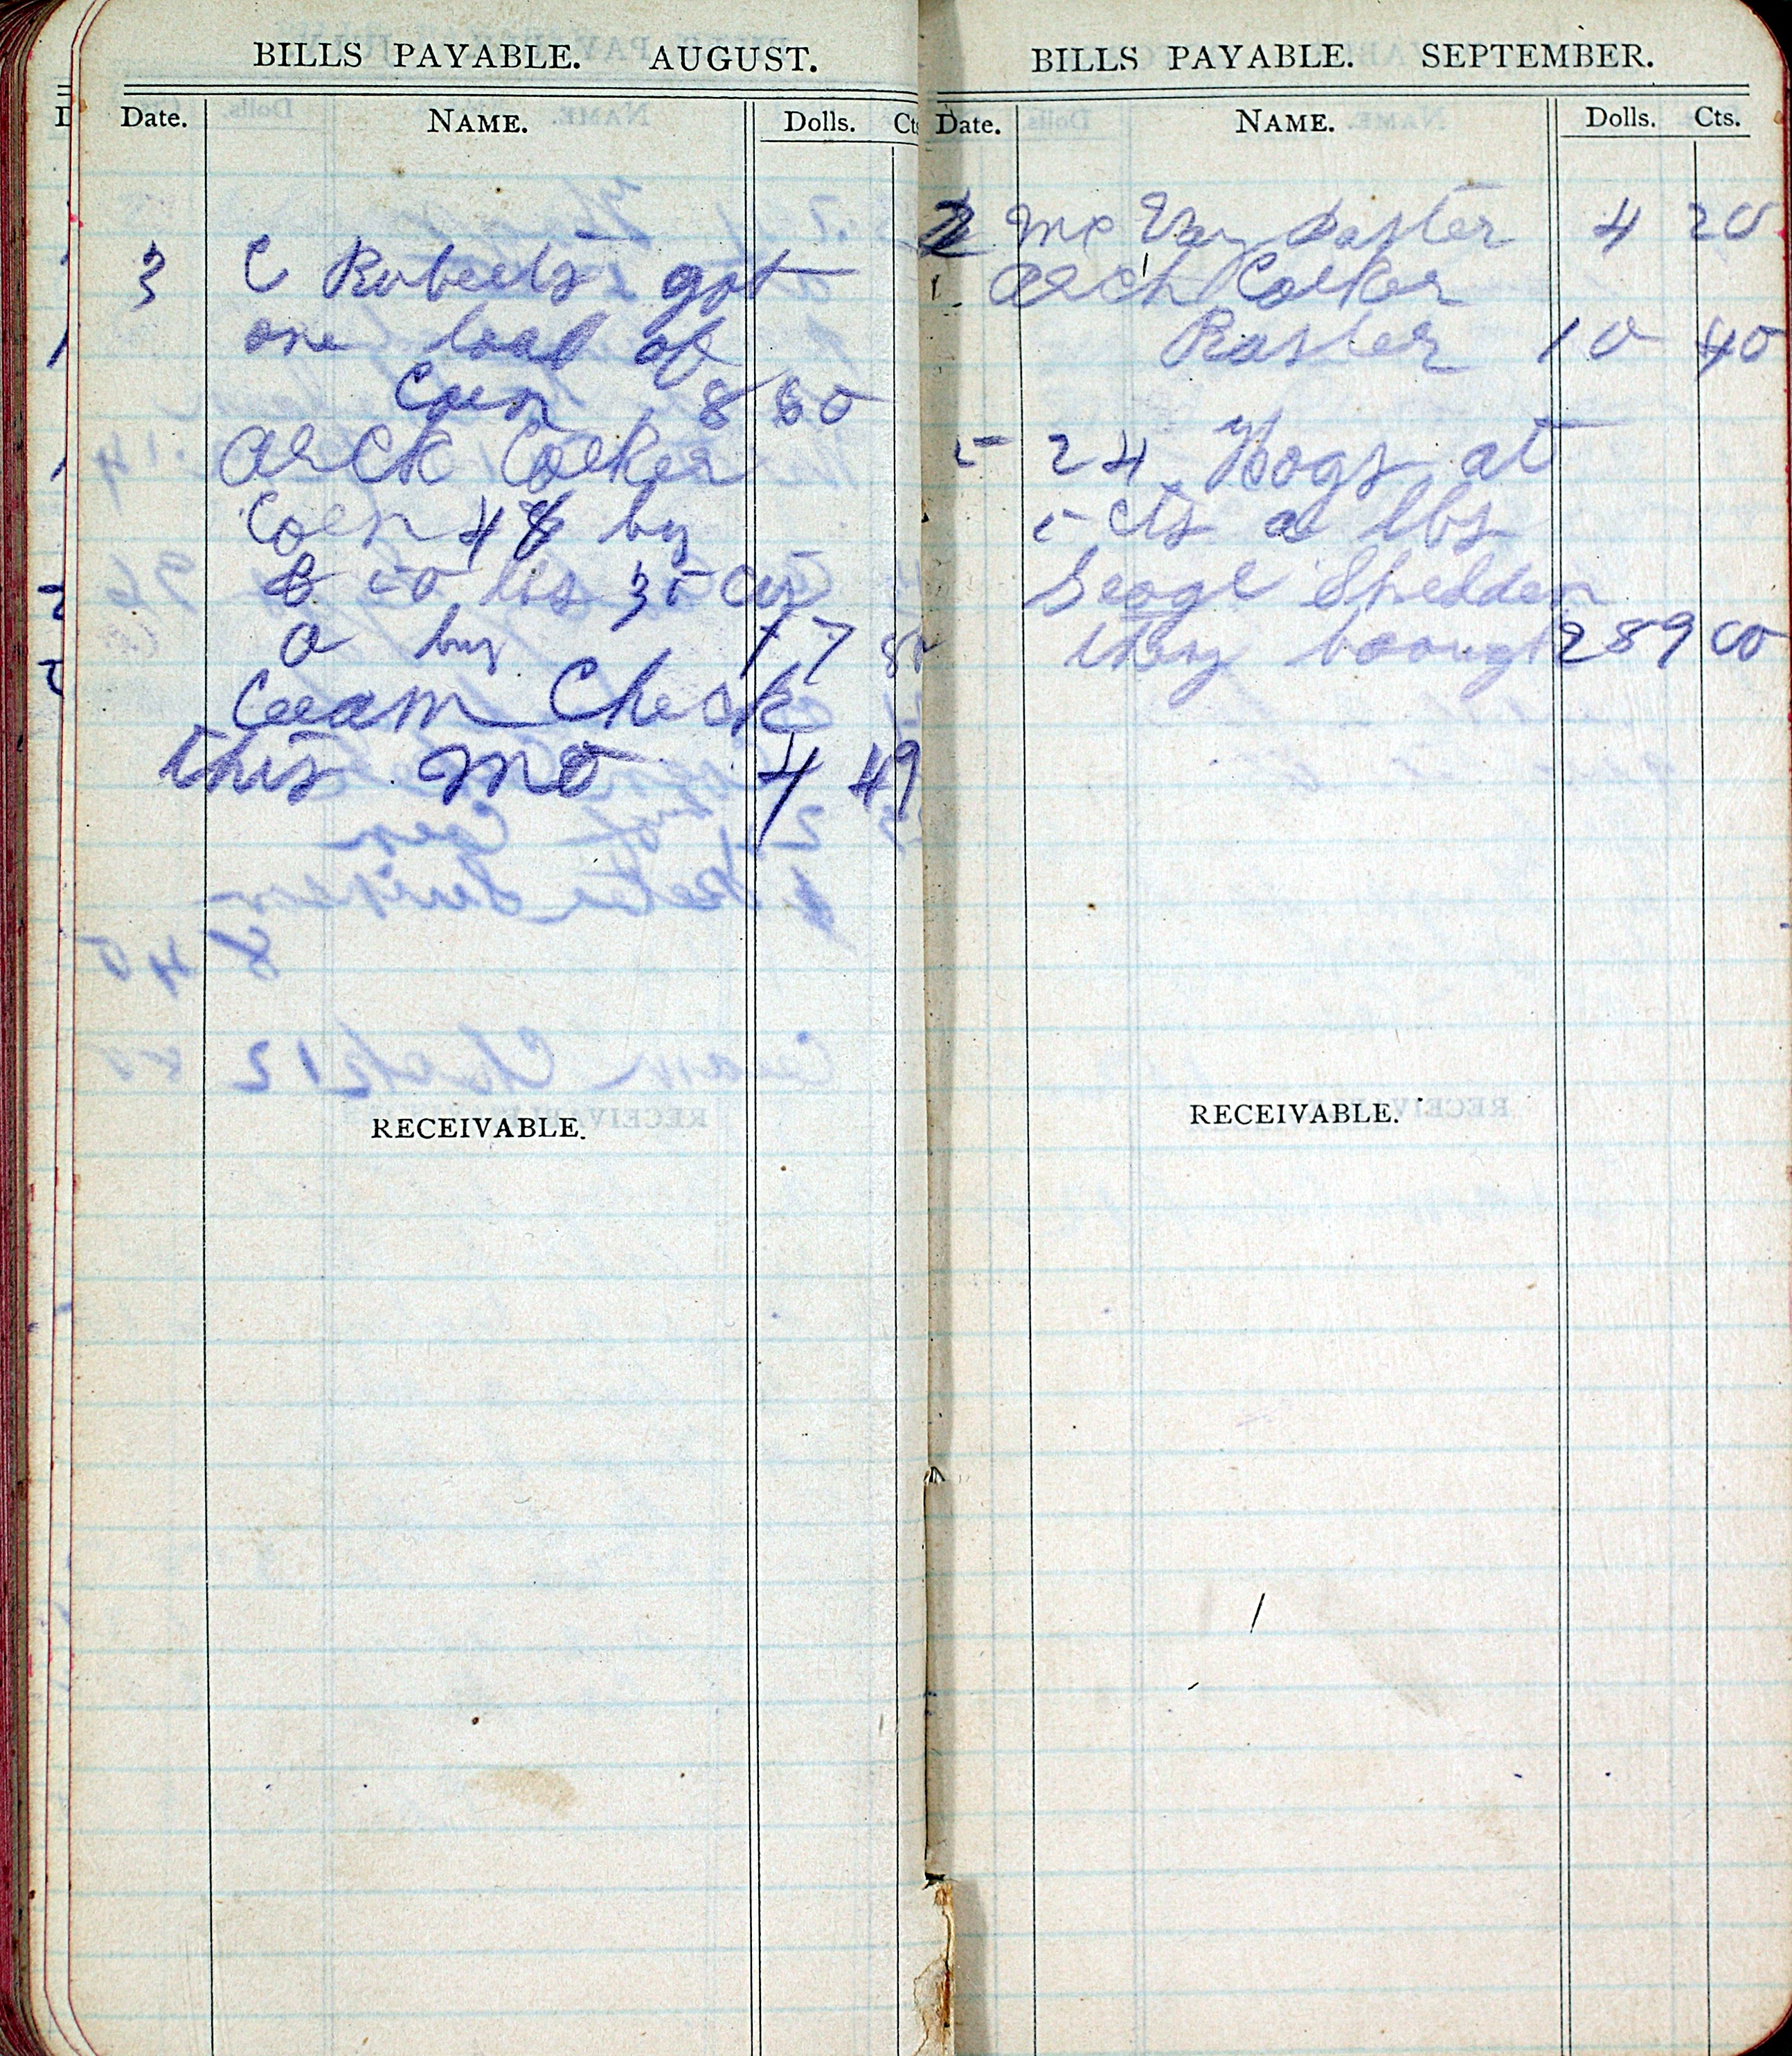 BILLS PAYABLE. AUGUST.
Date. NAME. Dolls. Cts
3 C Roberts got
one load of
Corn 8 80
Arck Colker
Corn 48 bu
& 50 lbs 35 cts
a bus 17
Cream Check
this mo 4 49
RECEIVABLE.
BILLS PAYABLE. SEPTEMBER.
Date. NAME. Dolls. Cts.
2 Mc Paster 4 20
Arch Colker
Paster 10 40
5 24 Hogs at
5 cts a lbs
Geoge Shedden
they boough 289 00
RECEIVABLE.